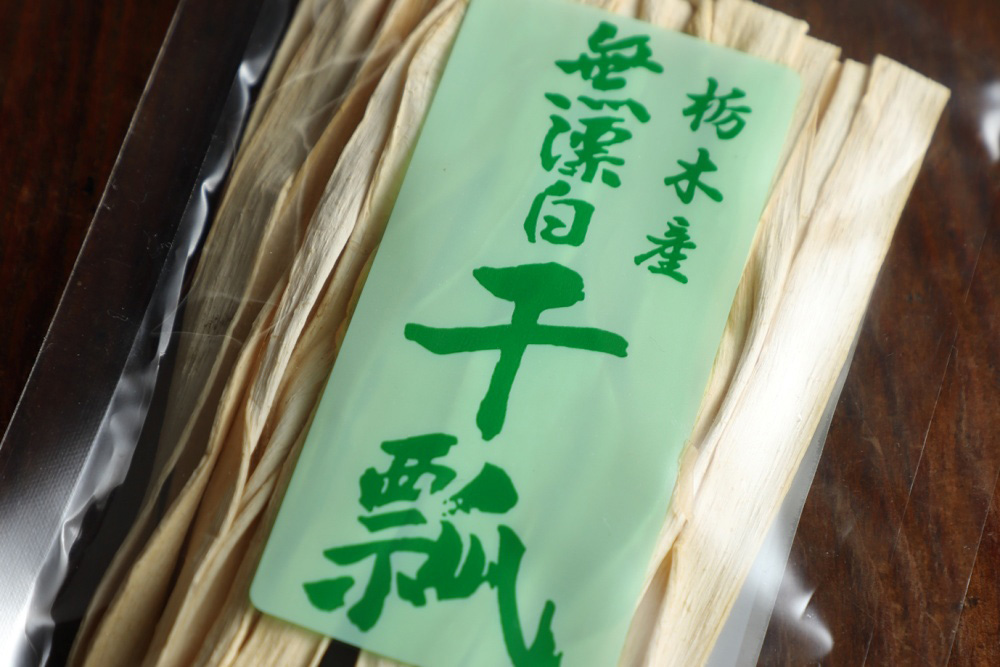 栃木産
無漂白
干瓢